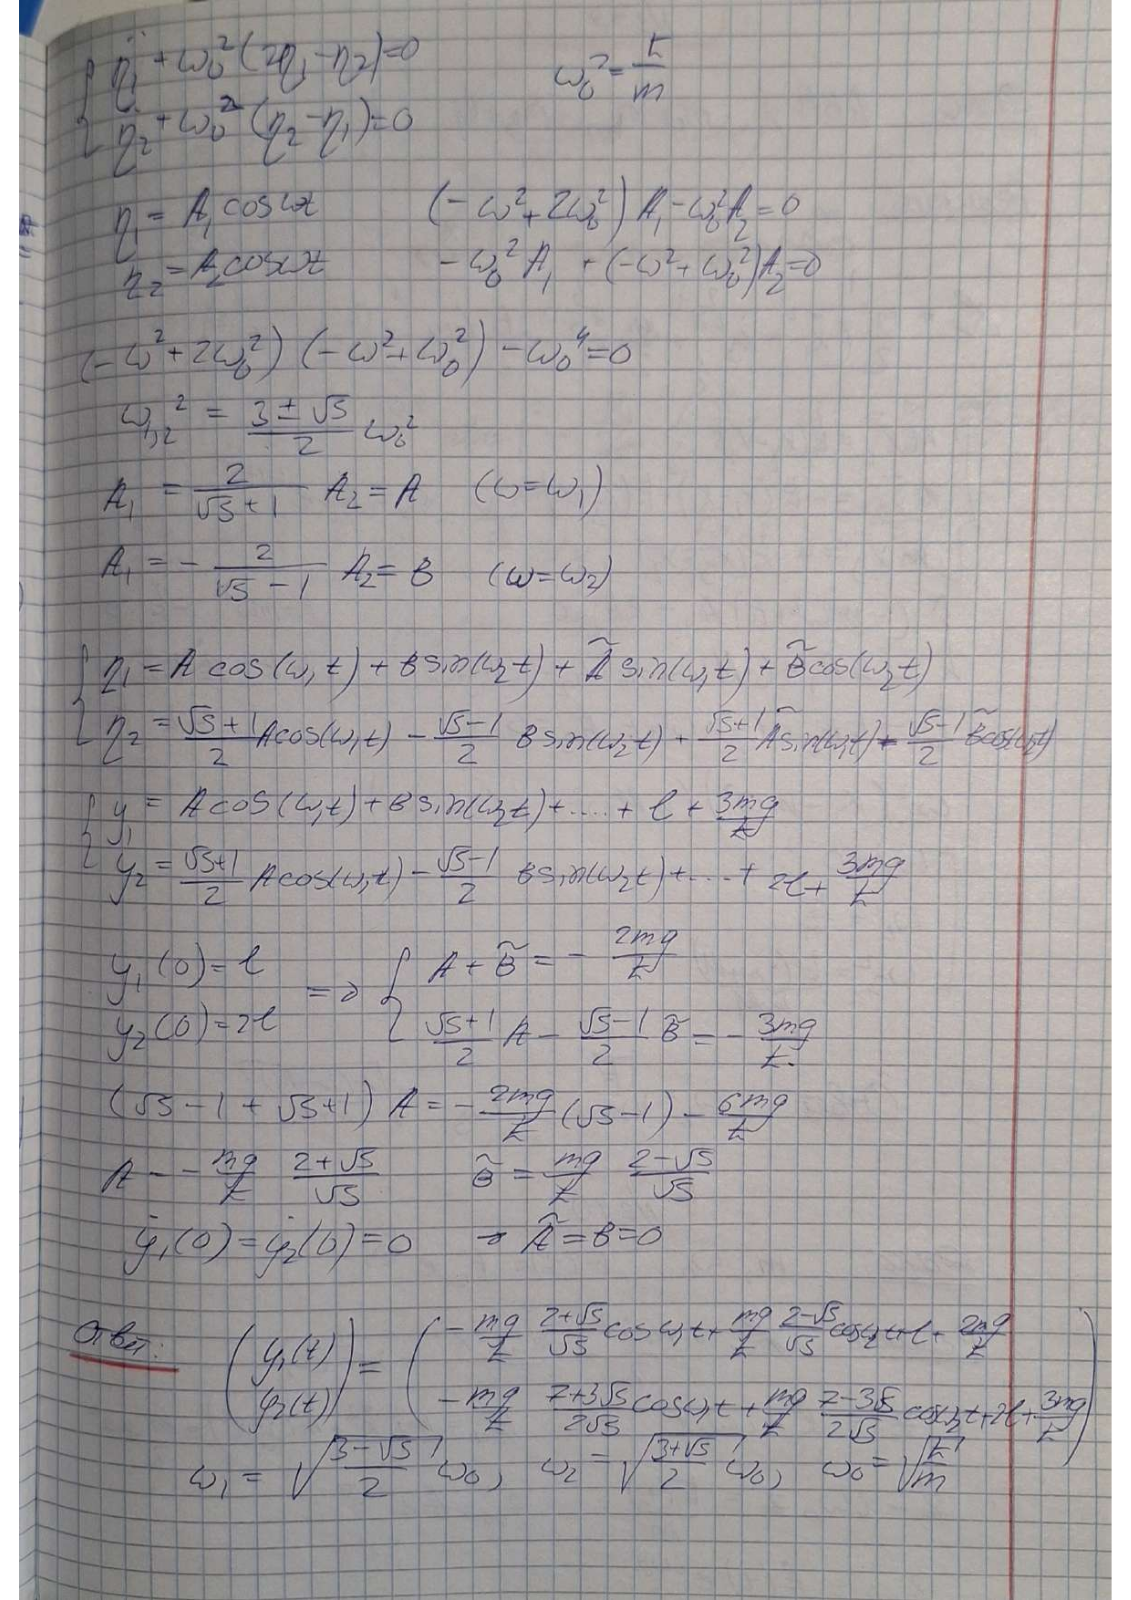 η̈₁ + ω₀²(2η₁ − η₂) = 0    ω₀² = k/m
η̈₂ + ω₀²(η₂ − η₁) = 0
η₁ = A₁ cos ωt    (−ω² + 2ω₀²) A₁ − ω₀²A₂ = 0
η₂ = A₂ cos ωt    −ω₀² A₁ + (−ω² + ω₀²)A₂ = 0
(−ω² + 2ω₀²) (−ω² + ω₀²) − ω₀⁴ = 0
ω₁,₂² = (3 ± √5)/2 ω₀²
A₁ = 2/(√5 + 1) A₂ = A    (ω = ω₁)
A₁ = − 2/(√5 − 1) A₂ = B    (ω = ω₂)
η₁ = A cos(ω₁t) + B sin(ω₂t) + Ã sin(ω₁t) + B̃ cos(ω₂t)
η₂ = (√5 + 1)/2 A cos(ω₁t) − (√5 − 1)/2 B sin(ω₂t) + (√5 + 1)/2 Ã sin(ω₁t) − (√5 − 1)/2 B̃ cos(ω₂t)
y₁ = A cos(ω₁t) + B sin(ω₂t) + .... + l + 3mg/k
y₂ = (√5 + 1)/2 A cos(ω₁t) − (√5 − 1)/2 B sin(ω₂t) + .... + 2l + 3mg/k
y₁(0) = l    => A + B̃ = − 2mg/k
y₂(0) = 2l    (√5 + 1)/2 A − (√5 − 1)/2 B̃ = − 3mg/k
(√5 − 1 + √5 + 1) A = − 2mg/k (√5 − 1) − 6mg/k
A = − mg/k (2 + √5)/√5    B̃ = mg/k (2 − √5)/√5
ẏ₁(0) = ẏ₂(0) = 0    → Ã = B = 0
Ответ: (y₁(t)) = (− mg/k (2 + √5)/√5 cos ω₁t + mg/k (2 − √5)/√5 cos ω₂t + l + 2mg/k)
(y₂(t))    (− mg/k (7 + 3√5)/(2√5) cos ω₁t + mg/k (7 − 3√5)/(2√5) cos ω₂t + 2l + 3mg/k)
ω₁ = √((3 − √5)/2) ω₀, ω₂ = √((3 + √5)/2) ω₀, ω₀ = √(k/m)